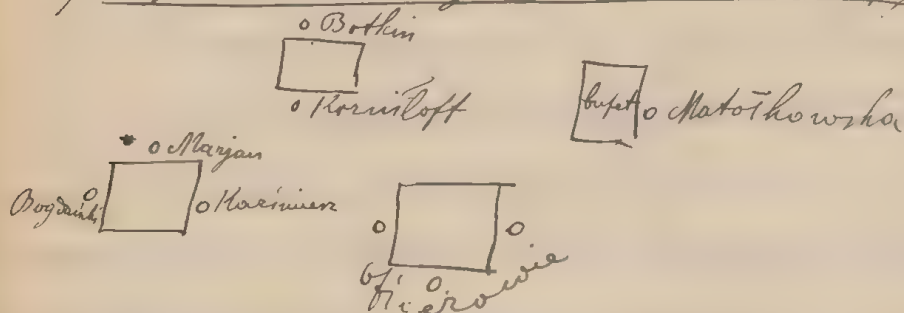 Botkin
Korniloff
bufet
Matoškowska
Marjan
Bogdański
Kazimierz
Oficerowie